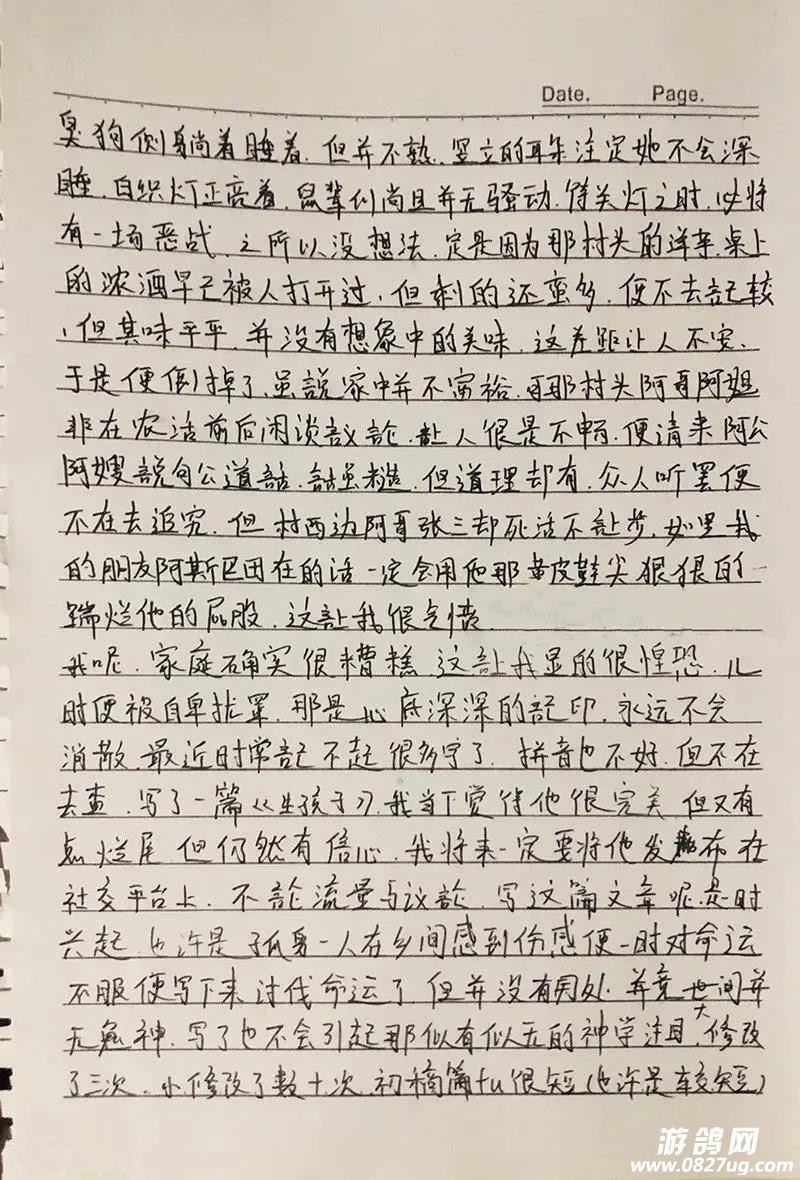 Date. Page.
臭狗侧身尚着睡着.但并不熟.竖立的耳朵注定她不会深
睡.白织灯正亮着.鼠辈们尚且并无骚动.待关灯之时.必将
有一场恶战.之所以没想法.定是因为那村头的洋辛.桌上
的浓酒早已被人打开过,但剩的还蛮多,便不去記较
,但其味平平,并没有想象中的美味,这差距让人不安、
于是便倒掉了,虽説家中并不富裕.可那村头阿哥阿姐
非在农活前后闲谈議論.讓人很是不畅.便请来阿公
阿嫂説句公道話.話虽糙.但道理却有.众人听罢便
不在去追究.但村西边阿哥张三却死活不讓步.如果我
的朋友阿斯巴团在的话一定会用他那黄皮鞋尖狠狠的
踹烂他的屁股.这讓我很气愤
我呢.家庭确实很糟糕.这讓我显的很惶恐.儿
时便被自卑拢罩.那是心底深深的記印.永远不会
消散.最近时常記不起很多字了.拼音也不好.但不在
去查.写了一篇《生孩子》.我当下觉待他很完美但又有
点烂尾.但仍然有信心.我将来一定要将他发布在
社交平台上.不論流量与议論.写这篇文章呢.是时
兴起.也许是孤身一人在乡间感到伤感便一时对命运
不服便写下来讨伐命运了.但并没有用处.并竟世间并
无鬼神.写了也不会引起那似有似无的神学注目.大修改
了三次.小修改了数十次.初稿篇fu很短(也许是较短)
游鸽网
www.0827ug.com